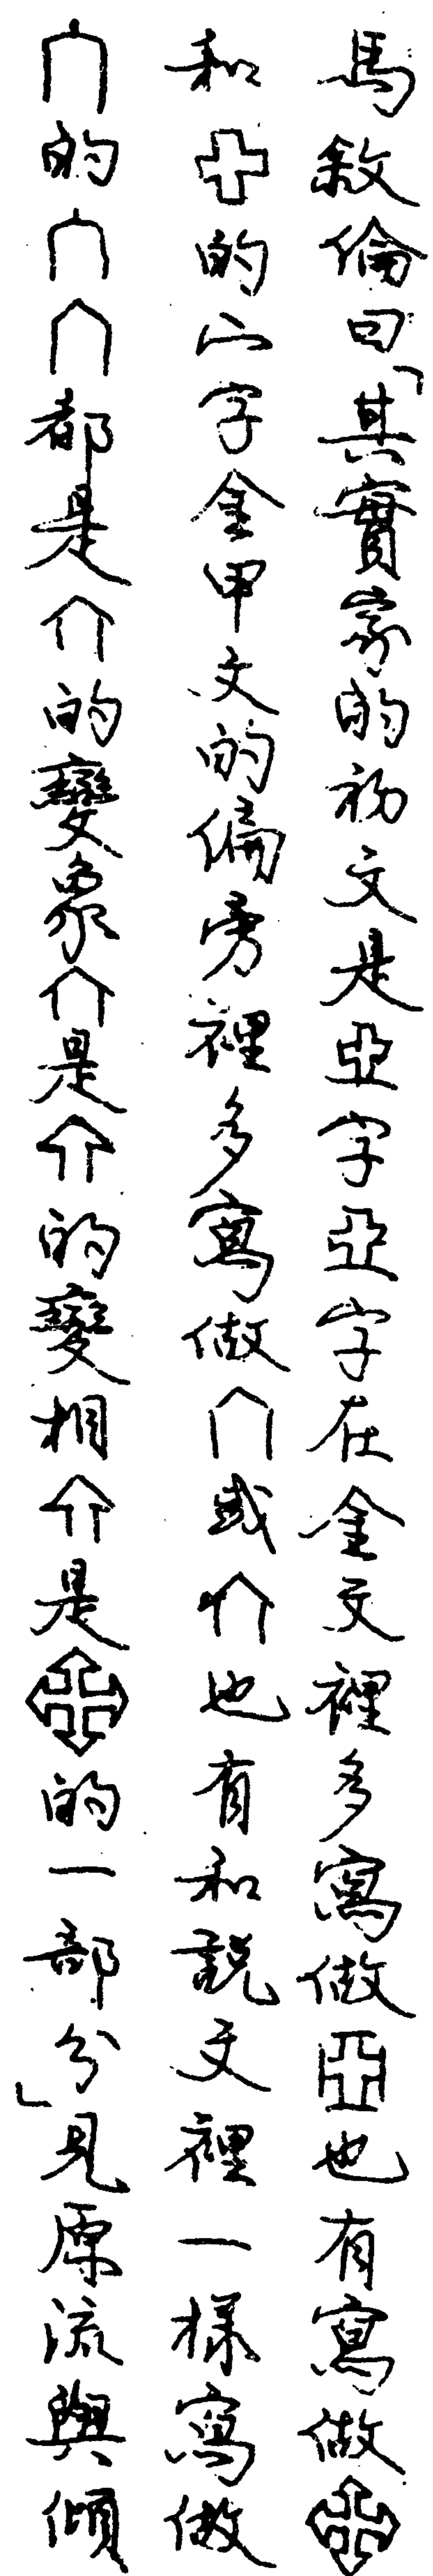 馬敘倫曰「其實家的初文是亞字亞字在金文裡多寫做亞也有寫做
和的宀字金甲文的偏旁裡多寫做或也有和説文裡一樣寫做
的都是的變象是的變相是的一部分」見原流與傾